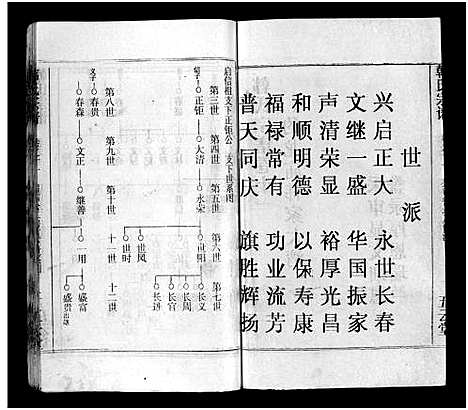 世派
兴启正大 永世长春
文继一盛 华国振家
声清荣显 裕厚光昌
和顺明德 以保寿康
福禄常有 功业流芳
普天同庆 旗胜辉扬
韩氏宗谱
五云堂
启信祖支下正钜公 支下世系图
第三世 第四世 第五世 第六世 第七世
正钜 大清 永荣 世阳 长义
长周
长官
长适
世凤
世时
第八世 第九世 第十世 十一世 十二世
春贵
春森 文正 继善 一用 盛富
盛贵